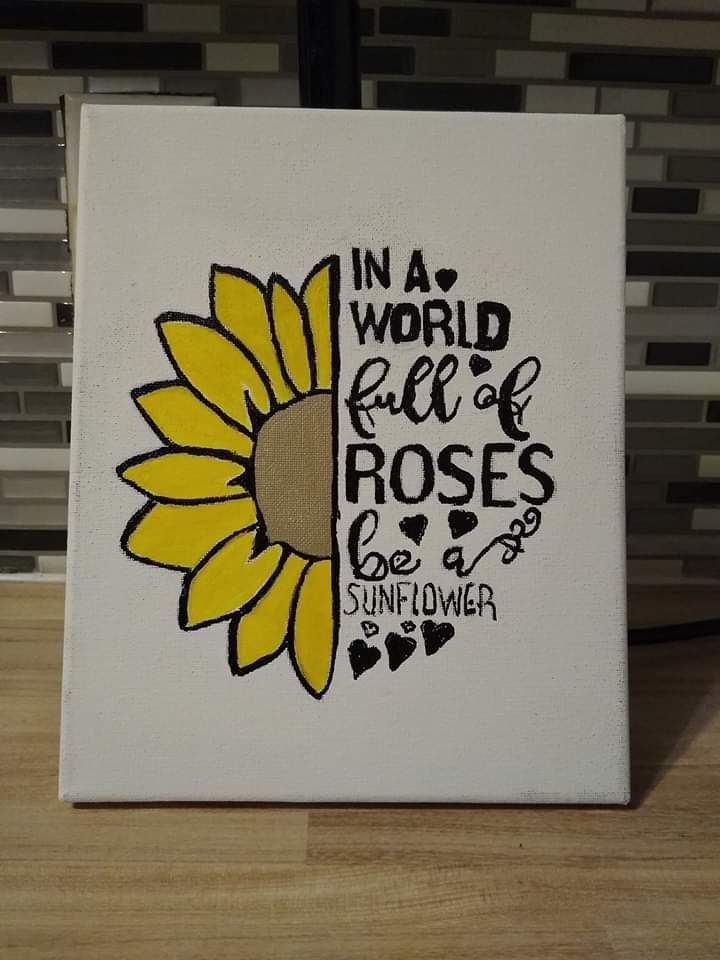 IN A
WORLD
full of
ROSES
be a
SUNFLOWER